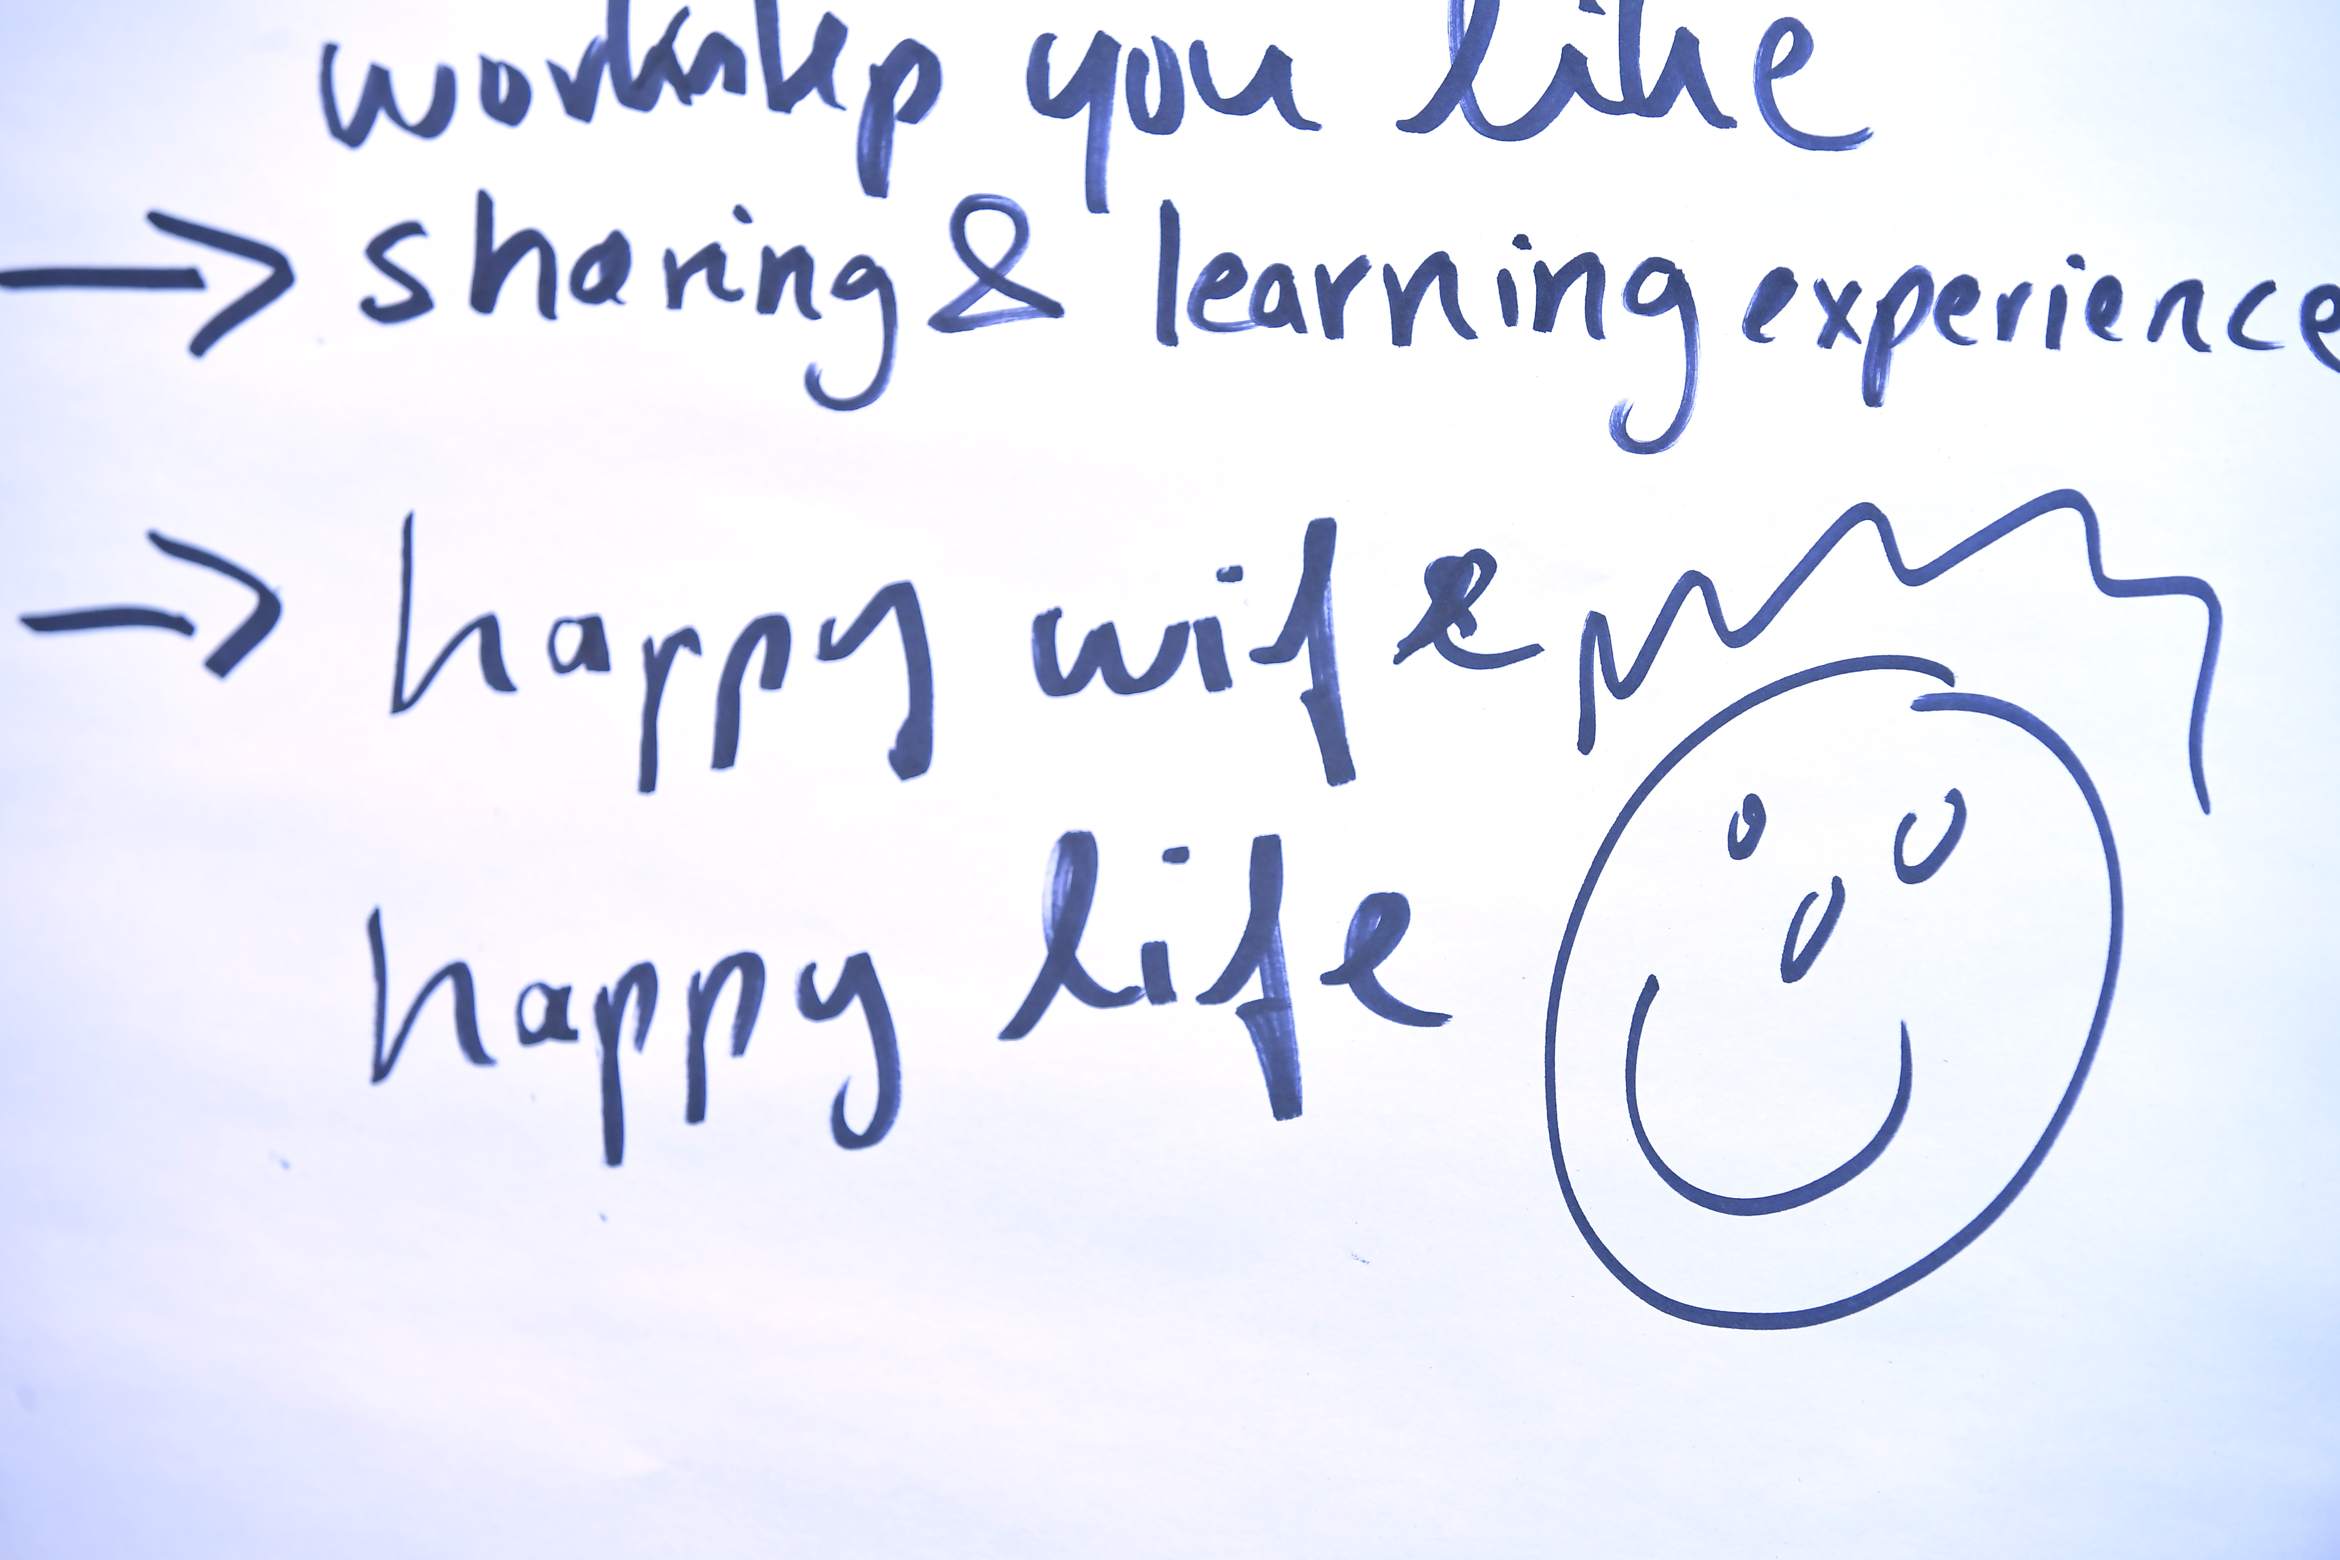 workshop you like
→ sharing & learning experience
→ happy wife
happy life